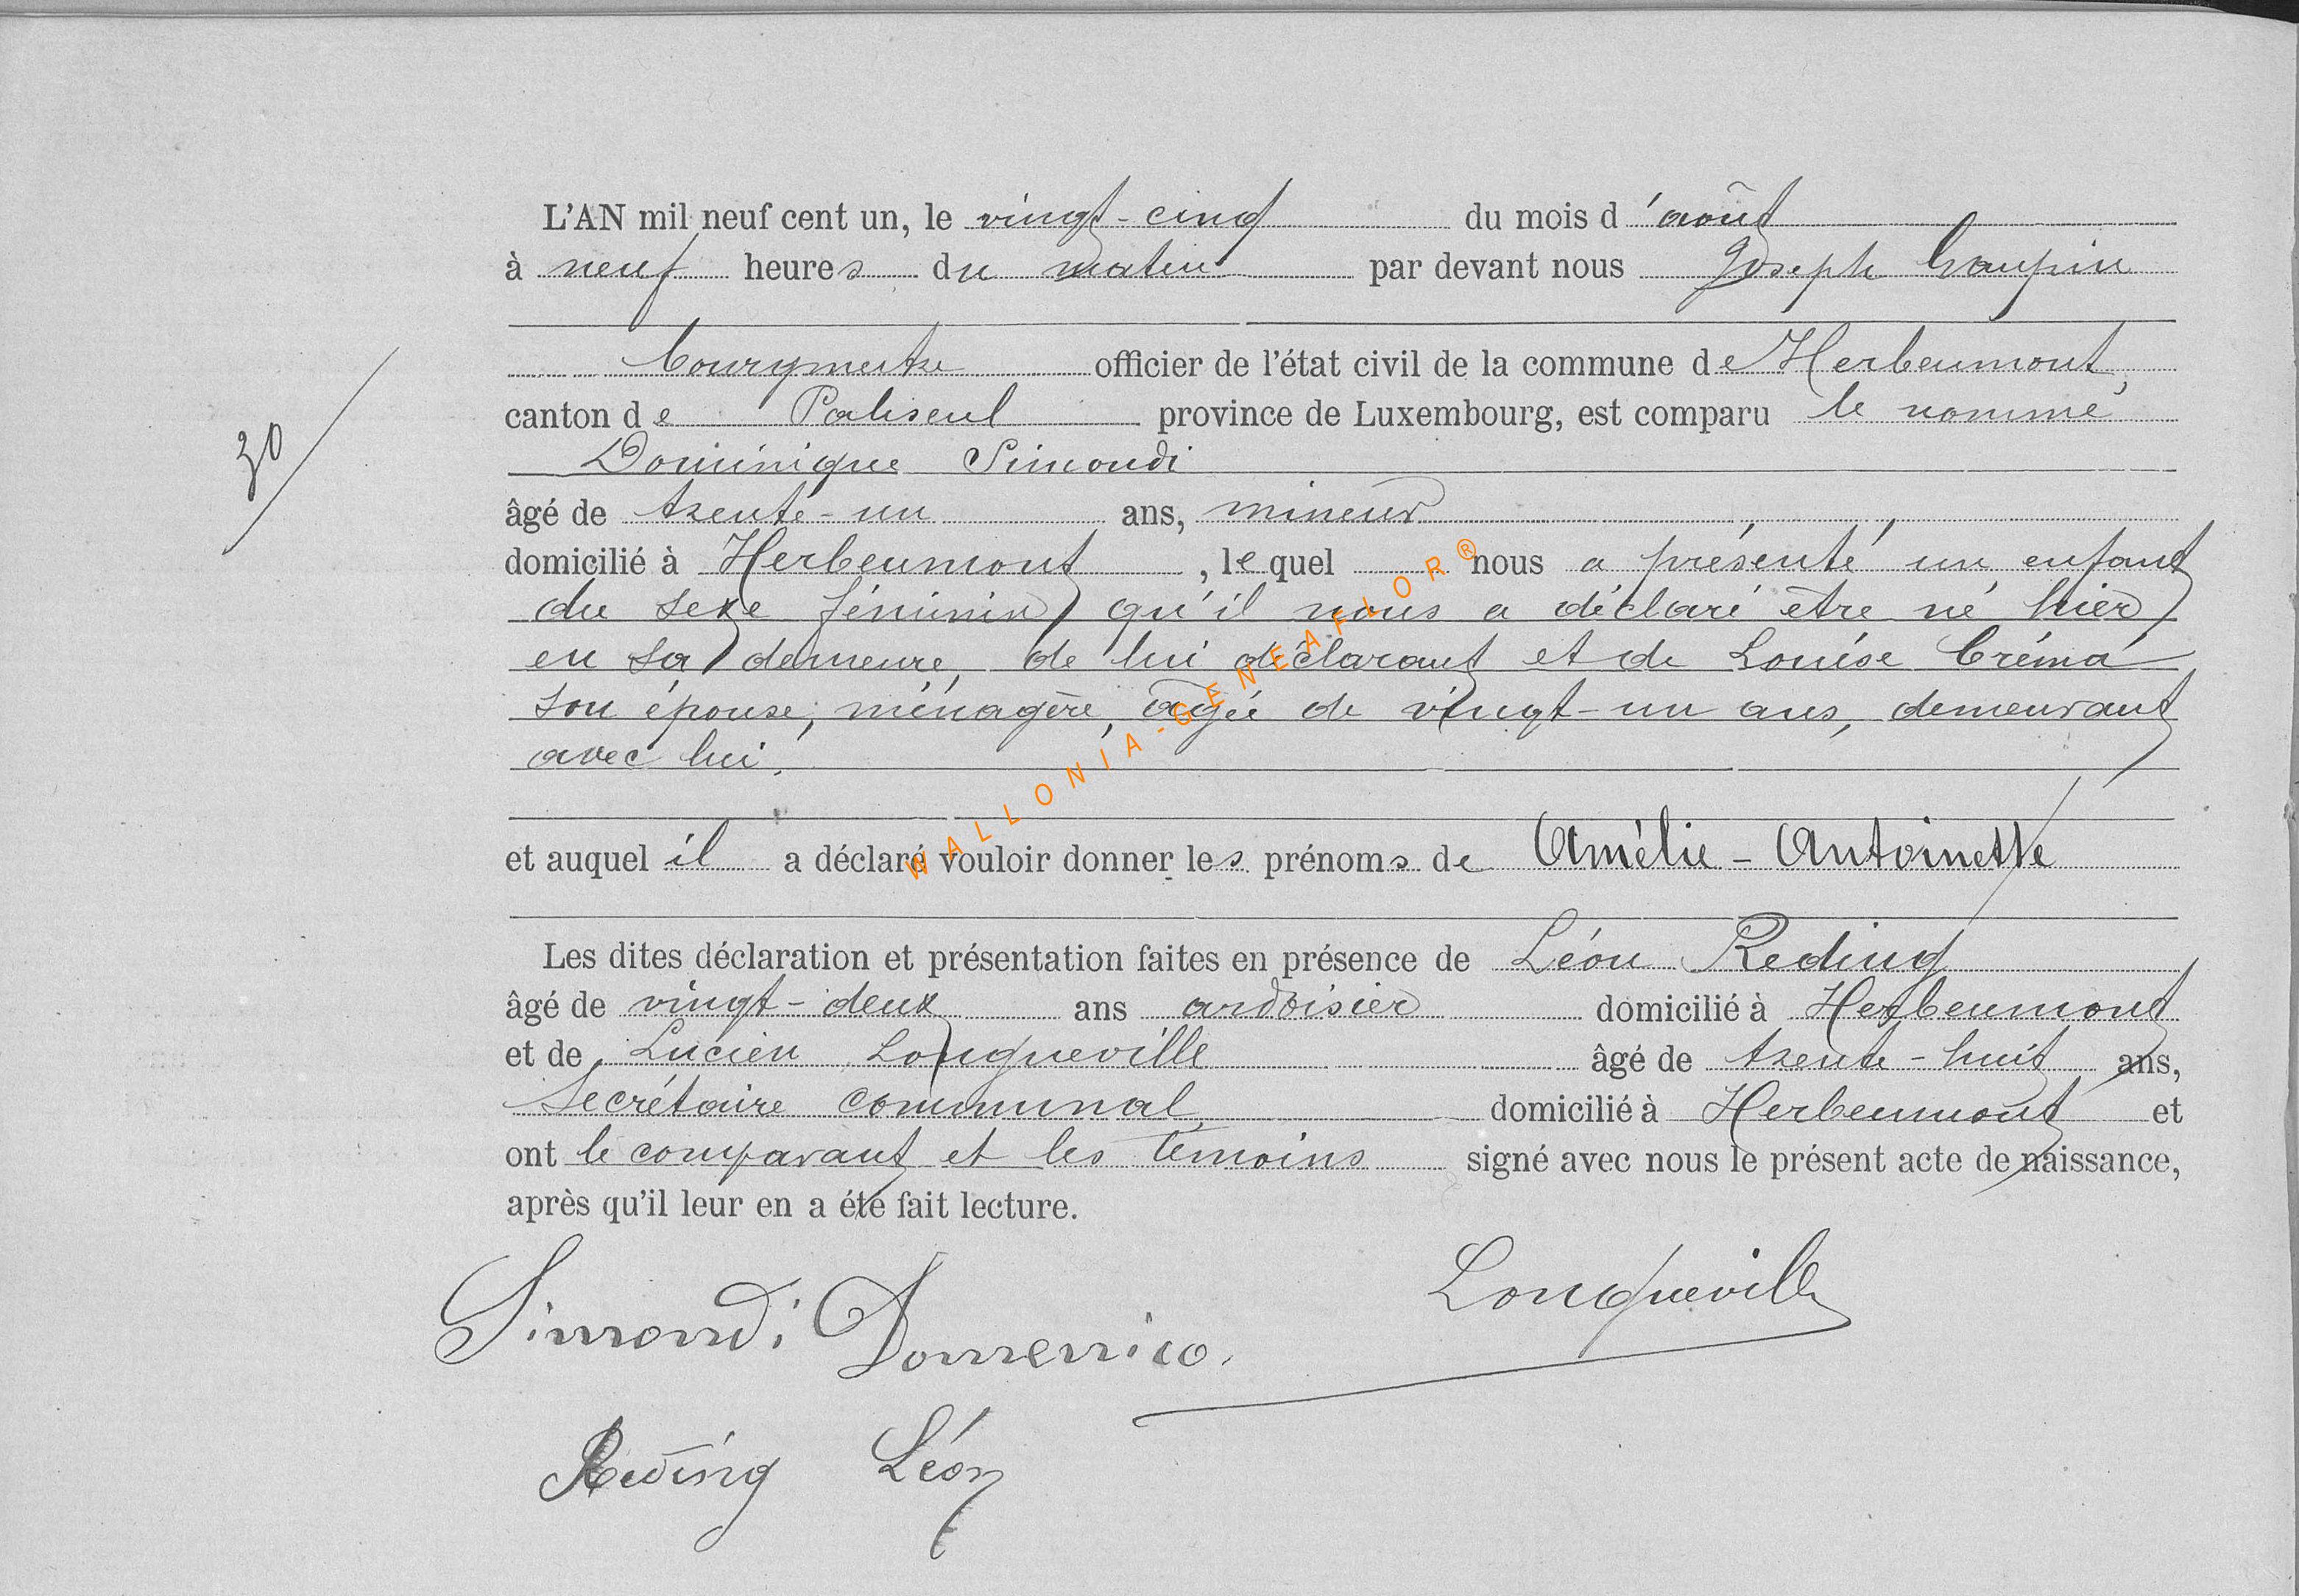 L'AN mil neuf cent un, le vingt-cinq du mois d'août
à neuf heures du matin par devant nous Joseph Caupin
Bourgmestre officier de l'état civil de la commune de Herbeumont,
canton de Paliseul province de Luxembourg, est comparu le nommé
30
Dominique Simondi
âgé de trente-un ans, mineur
domicilié à Herbeumont, lequel nous a présenté un enfant
du sexe féminin qu'il nous a déclaré être né hier
en sa demeure, de lui déclarant et de Louise Créma
son épouse, ménagère, âgée de vingt-un ans, demeurant
avec lui.
et auquel il a déclaré vouloir donner les prénoms de Amélie-Antoinette
Les dites déclaration et présentation faites en présence de Léon Reding
âgé de vingt-deux ans ardoisier domicilié à Herbeumont
et de Lucien Longueville âgé de trente-huit ans,
secrétaire communal domicilié à Herbeumont et
ont le comparant et les témoins signé avec nous le présent acte de naissance,
après qu'il leur en a été fait lecture.
Simondi Domenico.
Longueville
Reding Léon
WALLONIA-GENEAFLOR®